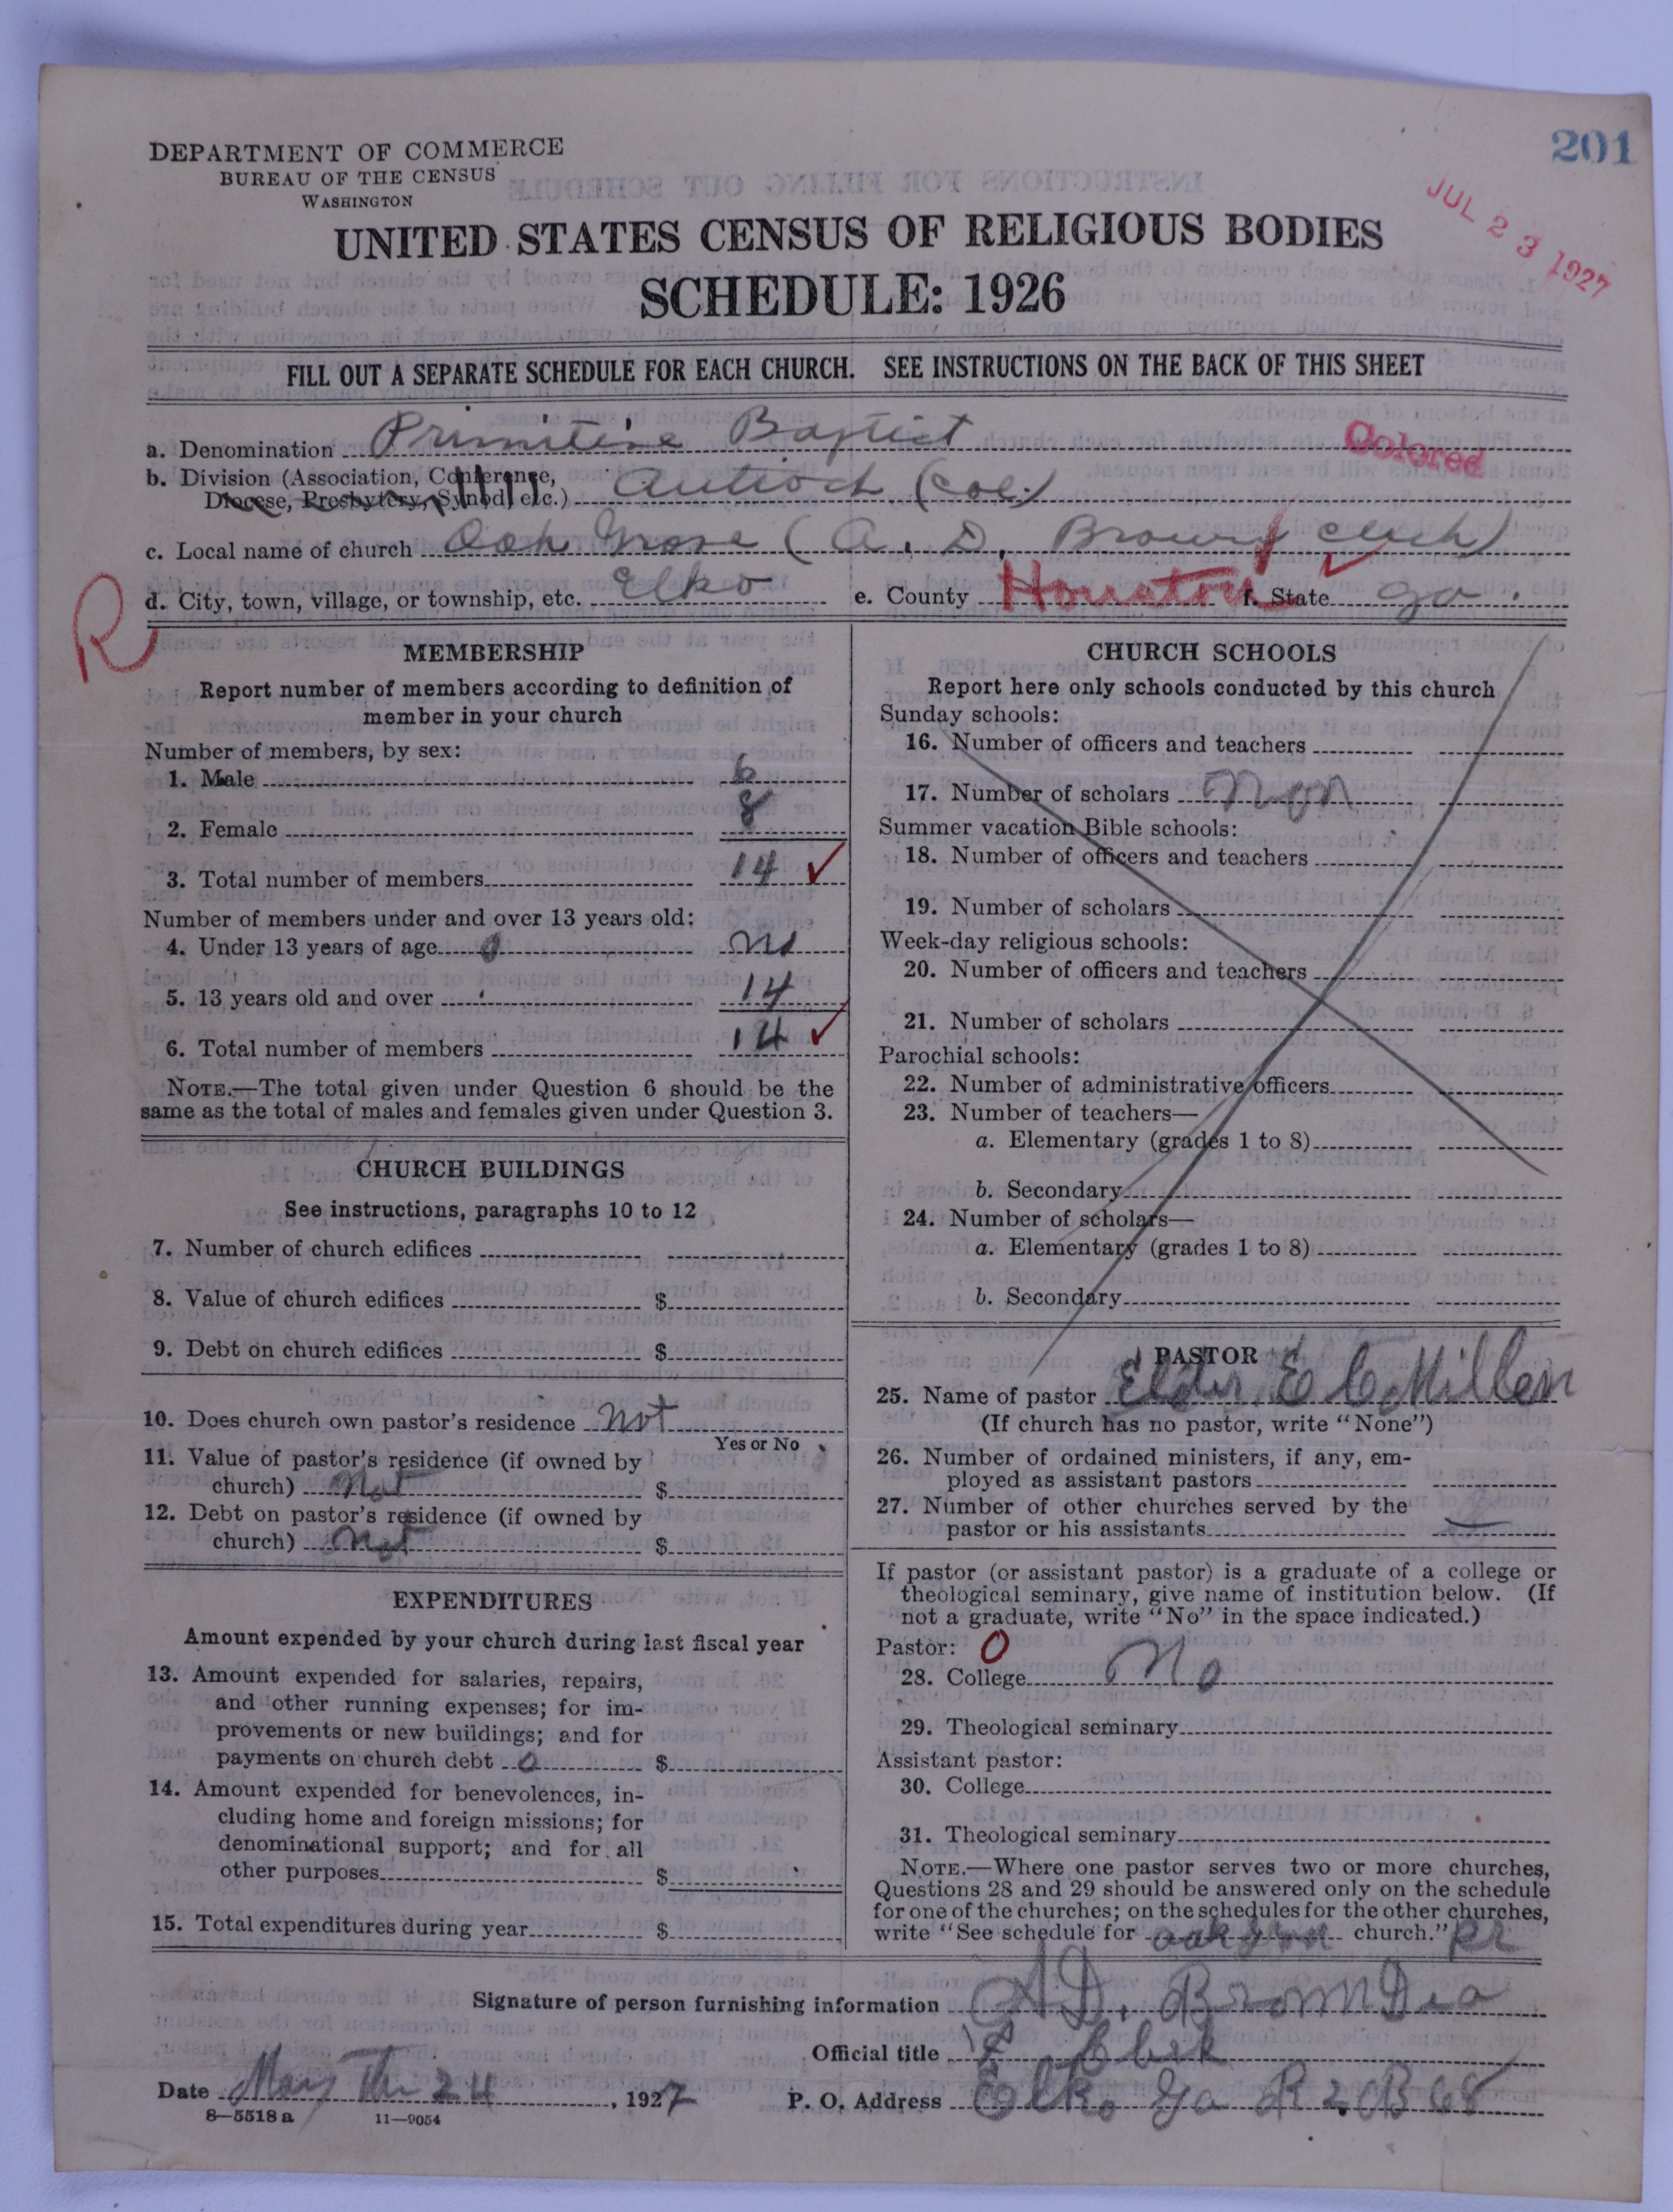 201
JUL 23 1927
DEPARTMENT OF COMMERCE
BUREAU OF THE CENSUS
WASHINGTON
UNITED STATES CENSUS OF RELIGIOUS BODIES
SCHEDULE: 1926
FILL OUT A SEPARATE SCHEDULE FOR EACH CHURCH. SEE INSTRUCTIONS ON THE BACK OF THIS SHEET
a. Denomination Primitive Baptist Colored
b. Division (Association, Conference,
Diocese, Presbytery, Synod, etc.) Antioch (Col.)
c. Local name of church Oak Grove (A. D. Brown
d. City, town, village, or township, etc. Elko e. County Houston f. State Ga.
R
MEMBERSHIP
Report number of members according to definition of
member in your church
Number of members, by sex:
1. Male 6
2. Female 8
3. Total number of members 14
Number of members under and over 13 years old:
4. Under 13 years of age 0 no
5. 13 years old and over 14
6. Total number of members 14
NOTE.—The total given under Question 6 should be the
same as the total of males and females given under Question 3.
CHURCH BUILDINGS
See instructions, paragraphs 10 to 12
7. Number of church edifices
8. Value of church edifices $
9. Debt on church edifices $
10. Does church own pastor's residence not
Yes or No
11. Value of pastor's residence (if owned by
church) Not $
12. Debt on pastor's residence (if owned by
church) Not $
EXPENDITURES
Amount expended by your church during last fiscal year
13. Amount expended for salaries, repairs,
and other running expenses; for im-
provements or new buildings; and for
payments on church debt 0 $
14. Amount expended for benevolences, in-
cluding home and foreign missions; for
denominational support; and for all
other purposes $
15. Total expenditures during year $
CHURCH SCHOOLS
Report here only schools conducted by this church
Sunday schools:
16. Number of officers and teachers
17. Number of scholars Non
Summer vacation Bible schools:
18. Number of officers and teachers
19. Number of scholars
Week-day religious schools:
20. Number of officers and teachers
21. Number of scholars
Parochial schools:
22. Number of administrative officers
23. Number of teachers—
a. Elementary (grades 1 to 8)
b. Secondary
24. Number of scholars—
a. Elementary (grades 1 to 8)
b. Secondary
PASTOR
25. Name of pastor Elder. E C Millen
(If church has no pastor, write "None")
26. Number of ordained ministers, if any, em-
ployed as assistant pastors
27. Number of other churches served by the
pastor or his assistants
If pastor (or assistant pastor) is a graduate of a college or
theological seminary, give name of institution below. (If
not a graduate, write "No" in the space indicated.)
Pastor: 0
28. College No
29. Theological seminary
Assistant pastor:
30. College
31. Theological seminary
NOTE.—Where one pastor serves two or more churches,
Questions 28 and 29 should be answered only on the schedule
for one of the churches; on the schedules for the other churches,
write "See schedule for church."
Signature of person furnishing information A D. Brown
Official title
Date May The 24, 1927 P. O. Address Elko Ga R 2 B 68
8—5518 a 11—9054